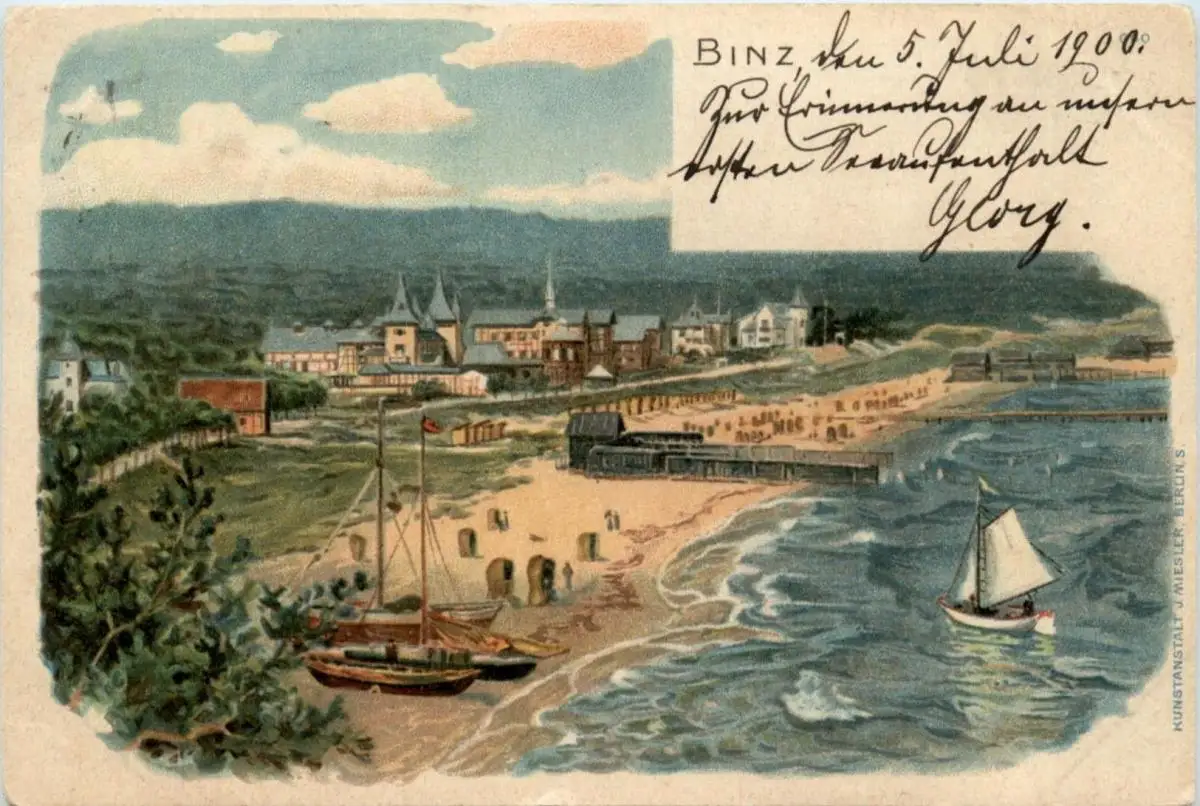 BINZ, den 5. Juli 1900.
Zur Erinnerung an unsern
ersten Seeaufenthalt
Georg.
KUNSTANSTALT J. MIESLER, BERLIN, S.